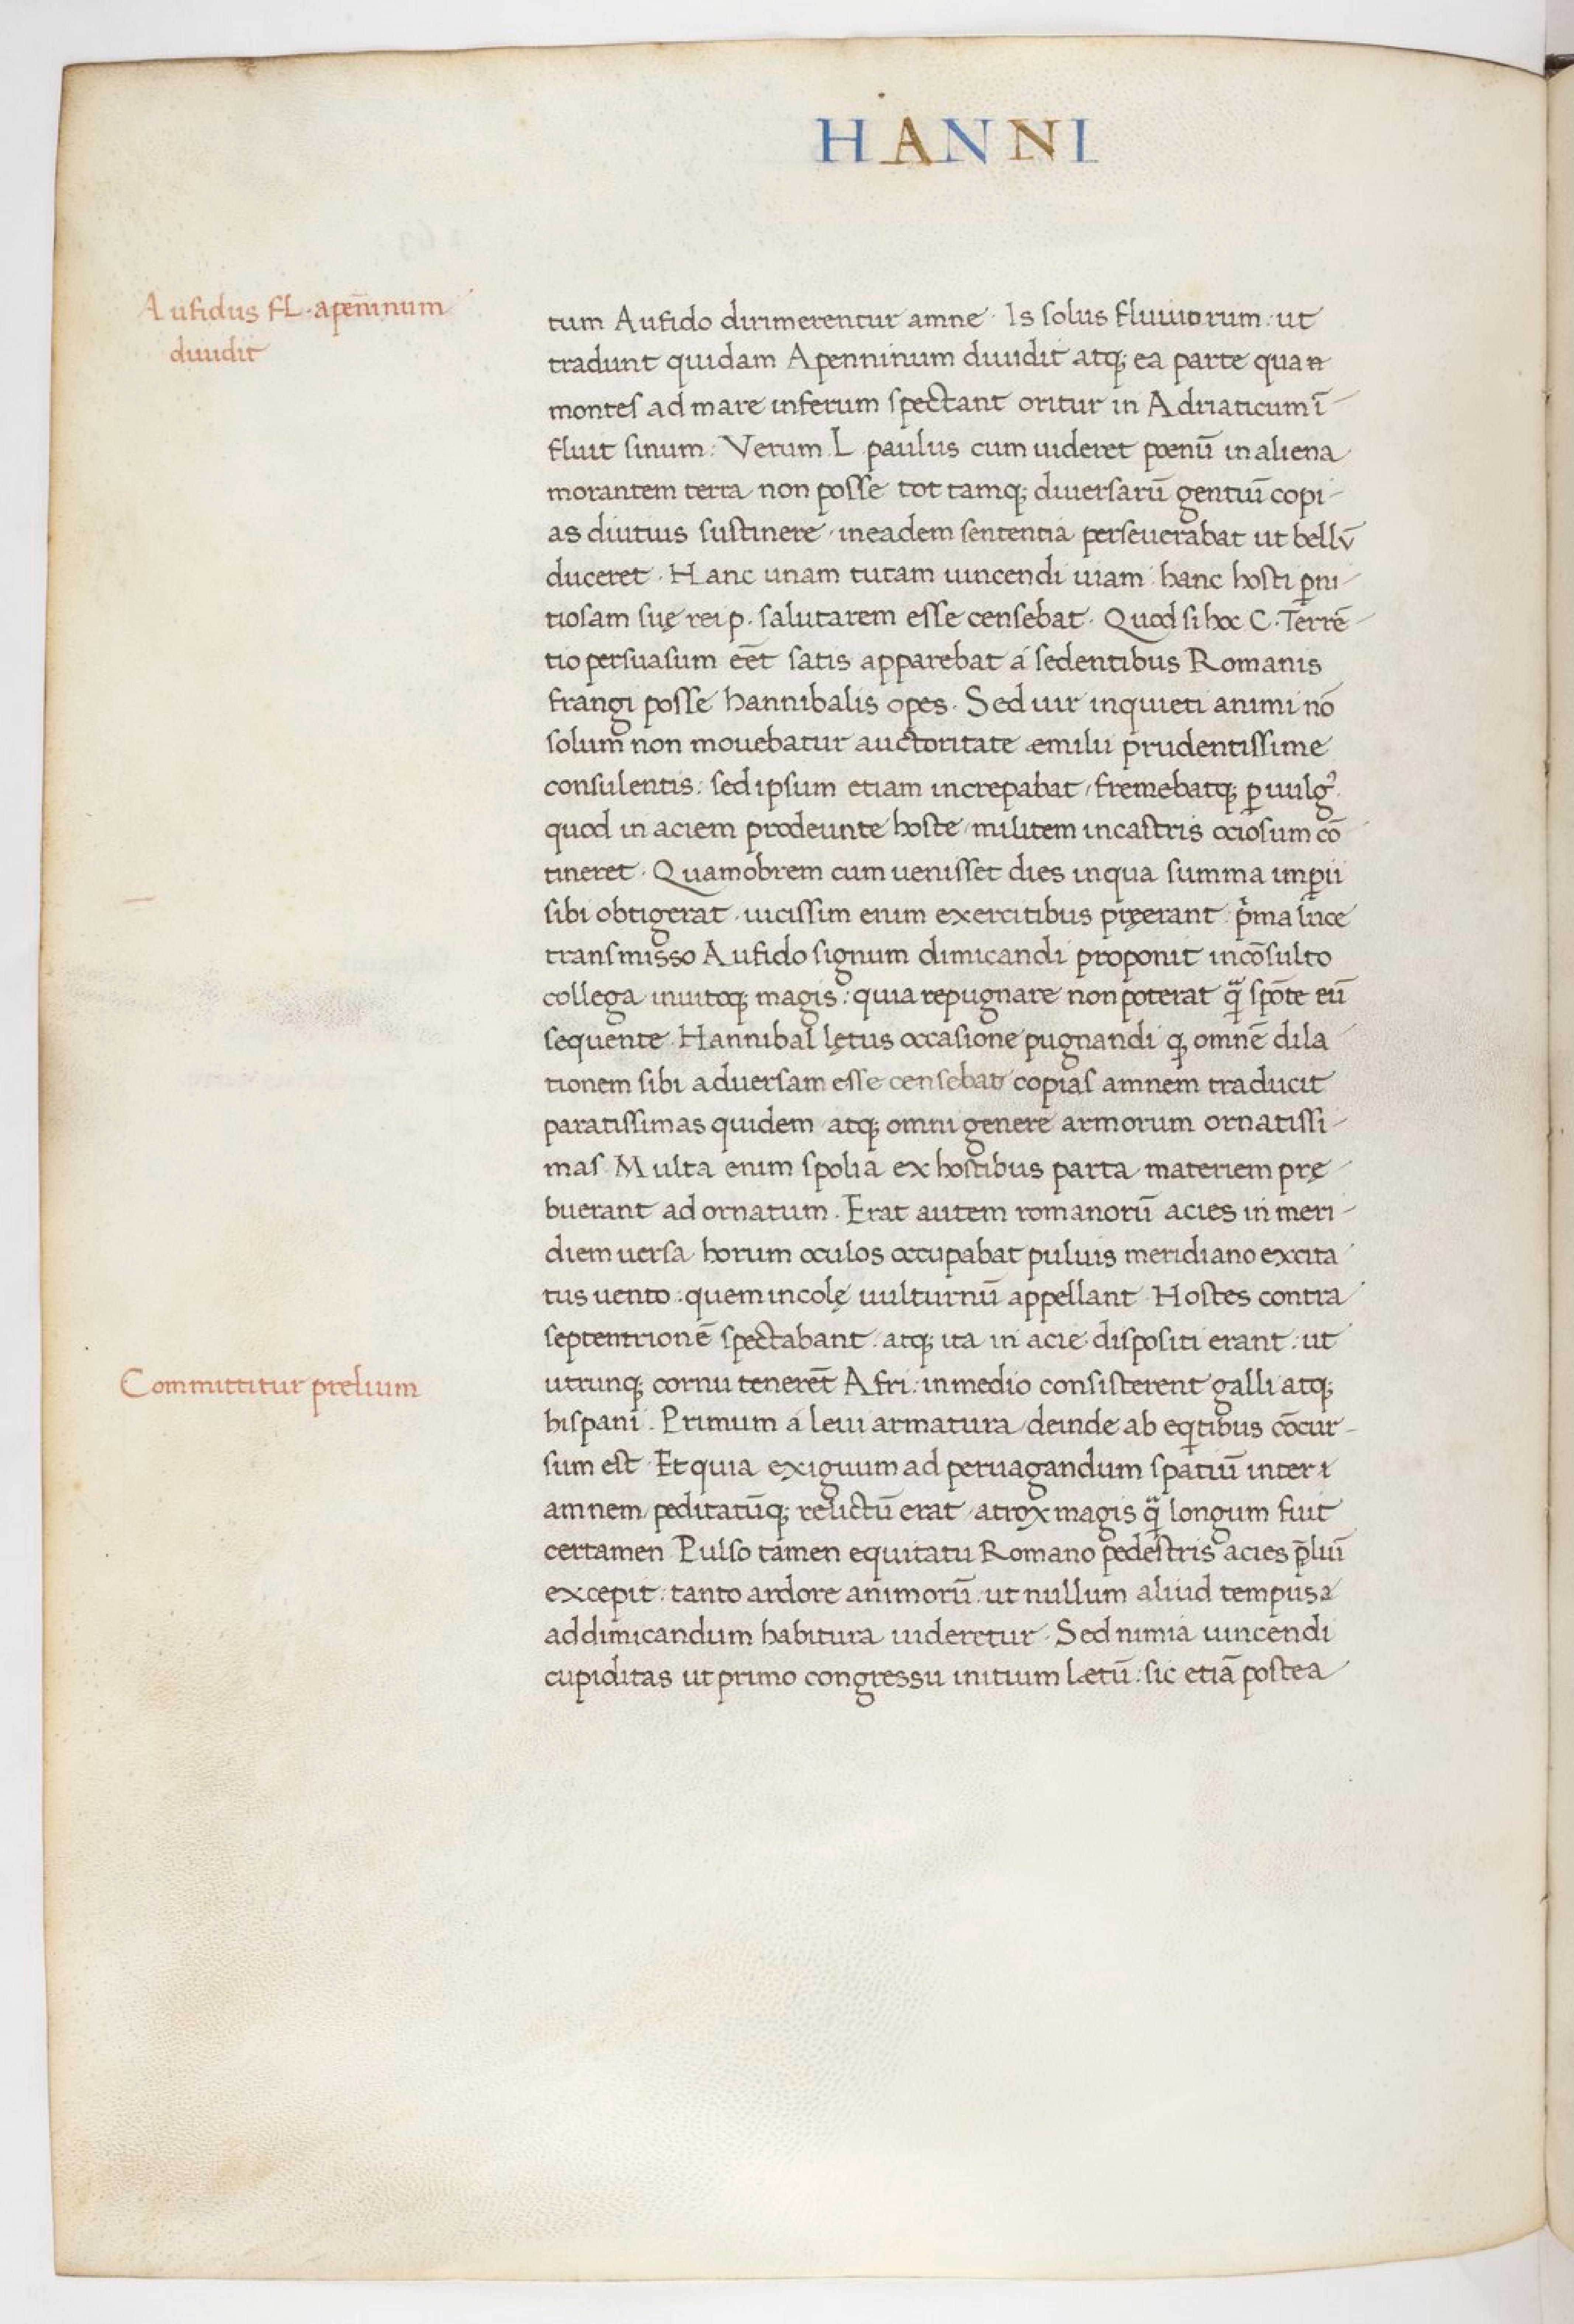 HANNI
Aufidus fl. apen̄inum
diuidit
tum Aufido dirimerentur amne. Is solus fluuiorum: ut
tradunt quidam Apenninum diuidit atq; ea parte qua
montes ad mare inferum spectant oritur in Adriaticum ī-
fluit sinum: Verum L. paulus cum uideret poenū in aliena
morantem terra non posse tot tamq; diuersarū gentiū copi-
as diutius sustinere, in eadem sententia perseuerabat ut bellū
duceret. Hanc unam tutam uincendi uiam: hanc hosti ꝑni-
tiosam suę rei p. salutarem esse censebat. Quod si hoc C. Terrē-
tio persuasum eēt satis apparebat á sedentibus Romanis
frangi posse hannibalis opes. Sed uir inquieti animi nō
solum non mouebatur auctoritate æmilii prudentissime
consulentis: sed ipsum etiam increpabat, fremebatq; ꝑ uulgꝰ
quod in aciem prodeunte hoste, militem in castris ociosum cō
tineret. Quamobrem cum uenisset dies in qua summa imꝑii
sibi obtigerat, uicissim enim exercitibus pręerant: pͥma luce
transmisso Aufido signum dimicandi proponit incōsulto
collega inuitoq; magis: quia repugnare non poterat qͣ̄ spōte eū
sequente. Hannibal lętus occasione pugnandi q, omnē dila
tionem sibi aduersam esse censebat copias amnem traducit
paratissimas quidem atq; omni genere armorum ornatissi-
mas. Multa enim spolia ex hostibus parta materiem prę-
buerant ad ornatum. Erat autem romanorū acies in meri-
diem uersa horum oculos occupabat puluis meridiano excita
tus uento: quem incolę uulturnū appellant. Hostes contra
septentrionē spectabant: atq; ita in acie dispositi erant: ut
Committitur prelium
utrunq; cornu tenerēt Afri: in medio consisterent galli atq;
hispani. Primum á leui armatura, deinde ab eqͥtibus cōcur-
sum est. Et quia exiguum ad peruagandum spatiū inter
amnem, peditatūq; relictū erat, atrox magis qͣ̄ longum fuit
certamen. Pulso tamen equitatu Romano pedestris acies p̄liū
excepit: tanto ardore animorū: ut nullum aliud tempus
ad dimicandum habitura uideretur. Sed nimia uincendi
cupiditas ut primo congressu initium lætū: sic etiā postea